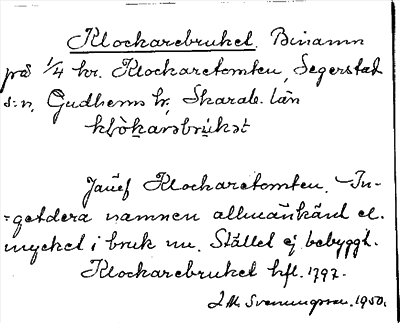 Klockarebruket. Binamn
på 1/4 hr. Klockaretomten, Segerstad
s:n, Gudhems hr, Skarab. län
klòkarəbrúkət
Jämf Klockaretomten. In-
=getdera namnen allmänkänt el.
mycket i bruk nu. Stället ej bebyggt.
Klockarebruket hfl. 1797.
Svenungsson. 1950.